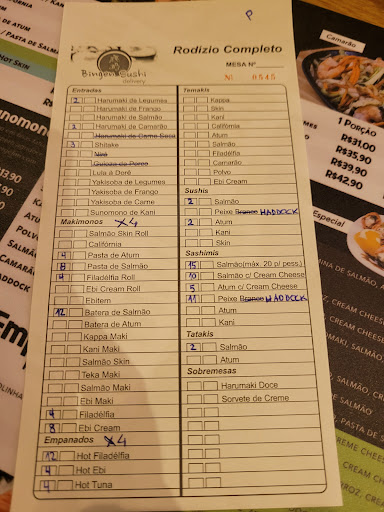 P
Bingen Sushi
delivery
Rodizio Completo
MESA Nº
Nº 0545
Entradas
2 Harumaki de Legumes
Harumaki de Frango
Harumaki de Salmão
2 Harumaki de Camarão
Harumaki de Carne Seca
3 Shitake
Nirá
Guioza de Porco
Lula á Derê
Yakisoba de Legumes
Yakisoba de Frango
Yakisoba de Carne
Sunomono de Kani
Makimonos X4
Salmão Skin Roll
Califórnia
4 Pasta de Atum
8 Pasta de Salmão
4 Filadélfia Roll
Ebi Cream Roll
Ebitem
12 Batera de Salmão
Batera de Atum
Kappa Maki
Kani Maki
Salmão Skin
Teka Maki
Salmão Maki
Ebi Maki
4 Filadélfia
8 Ebi Cream
Empanados X4
12 Hot Filadélfia
4 Hot Ebi
4 Hot Tuna
Temakis
Kappa
Skin
Kani
Califórnia
Atum
Salmão
Filadélfia
Camarão
Polvo
Ebi Cream
Sushis
2 Salmão
Peixe Branco HADDOCK
2 Atum
Kani
Skin
Sashimis
15 Salmão(máx. 20 p/ pess)
10 Salmão c/ Cream Cheese
5 Atum c/ Cream Cheese
11 Peixe Branco HADDOCK
Atum
Kani
Tatakis
2 Salmão
Atum
Sobremesas
Harumaki Doce
Sorvete de Creme
Camarão
1 PORÇÃO
R$31,00
R$35,90
R$39,90
R$42,90
Especial